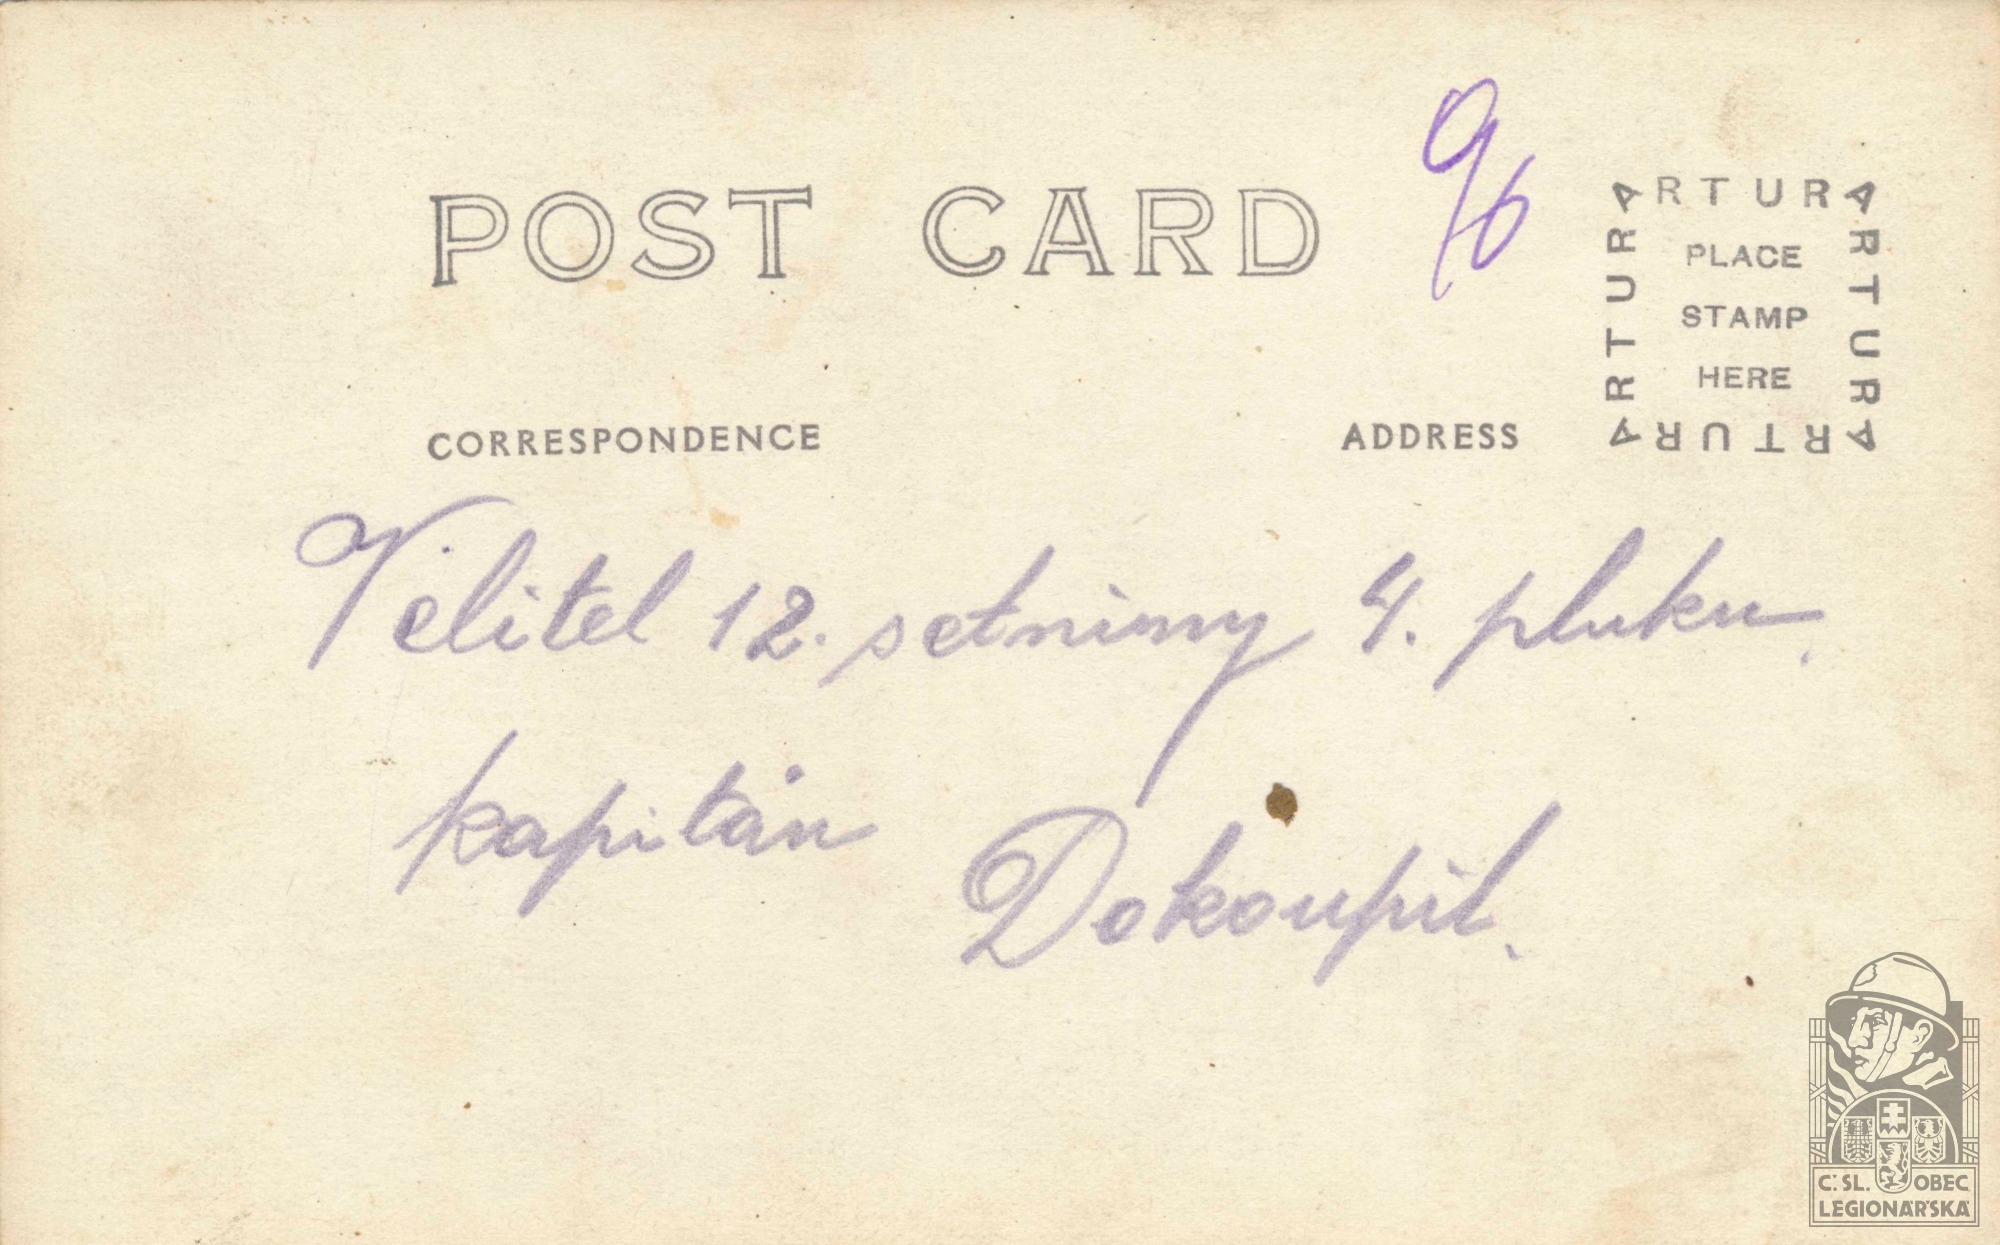 96
POST CARD
ARTURA
ARTURA
ARTURA
ARTURA
PLACE
STAMP
HERE
CORRESPONDENCE
ADDRESS
Velitel 12. setniny 4. pluku.
kapitán Dokoupil.
Č. SL. OBEC
LEGIONÁŘSKÁ